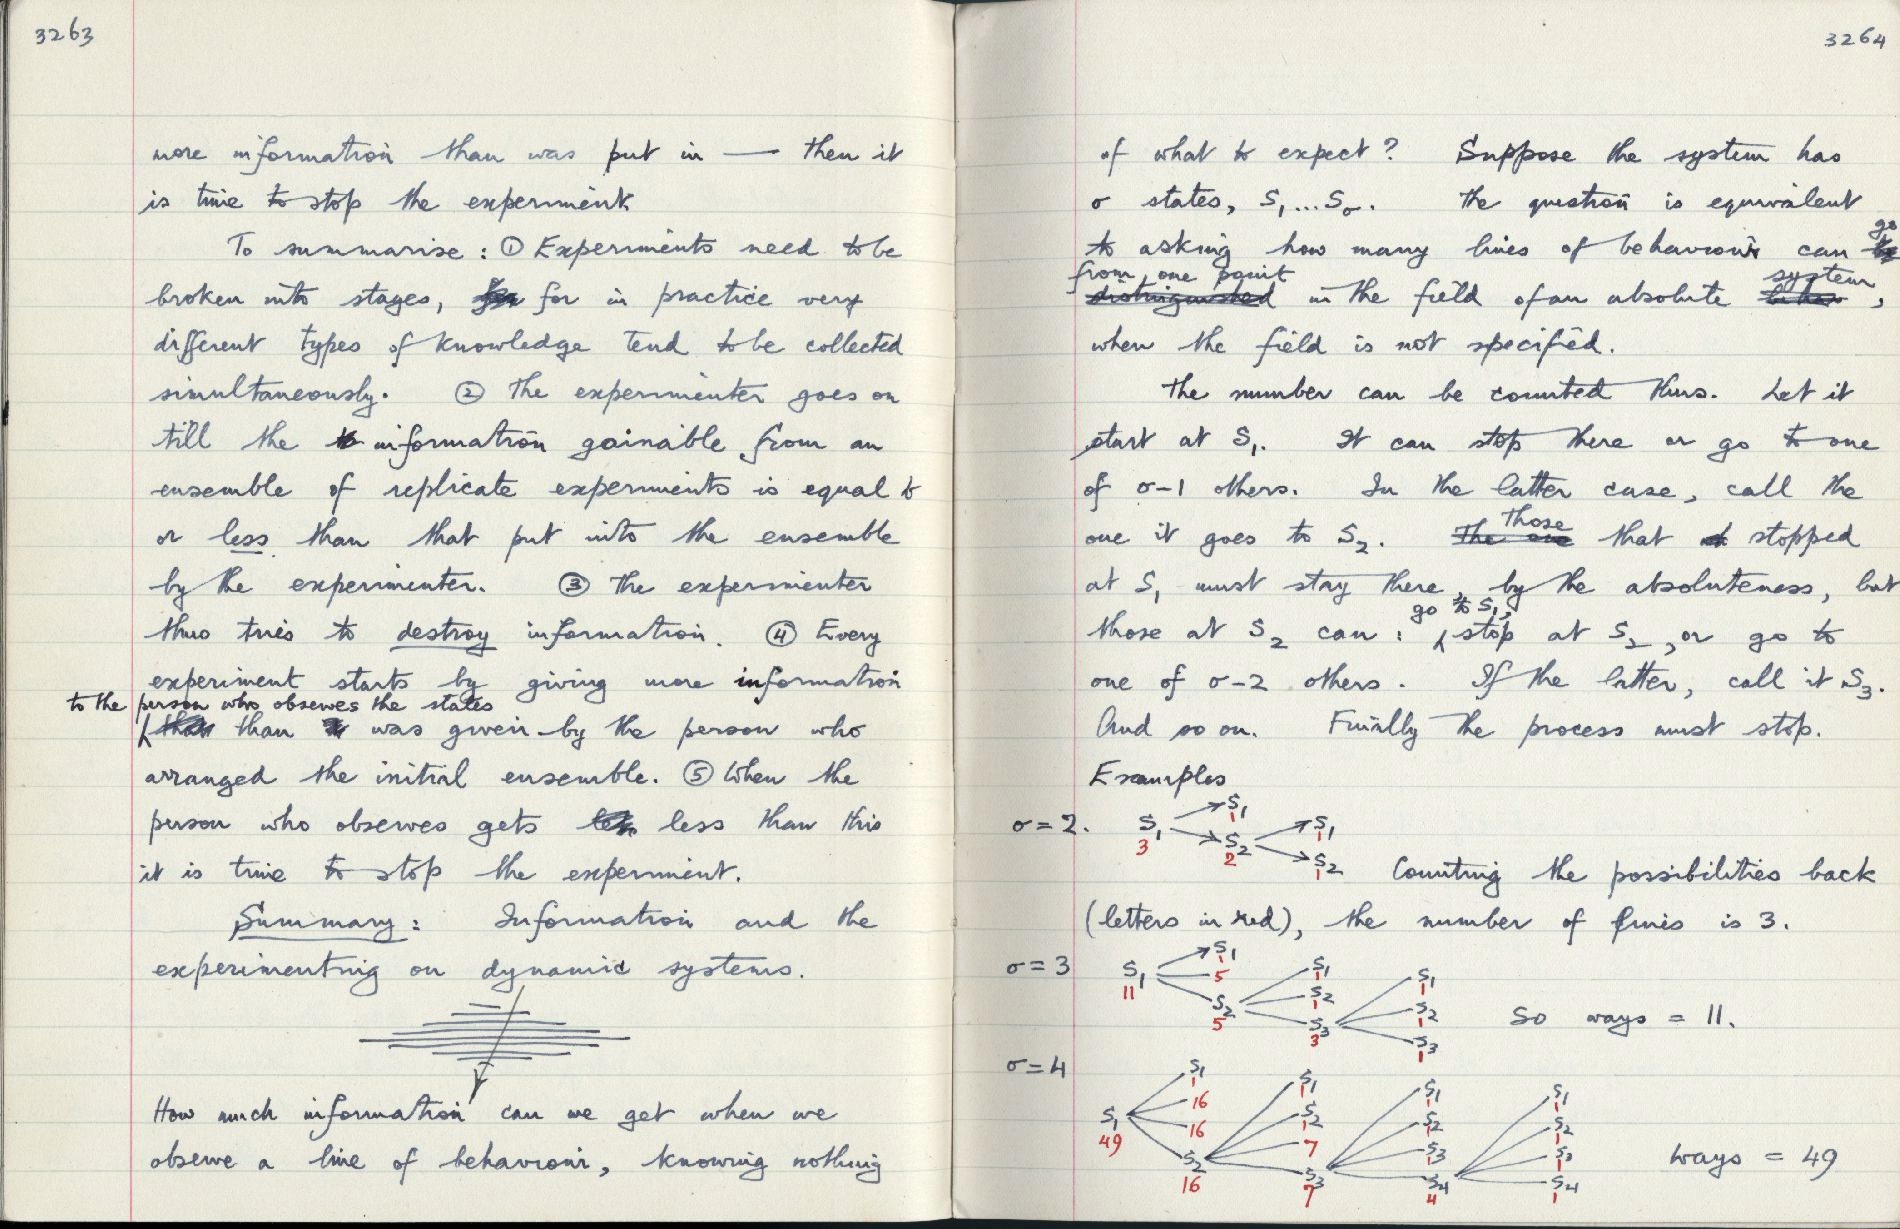 3263
more information than was put in — then it
is time to stop the experiment.
To summarise: ① Experiments need to be
broken into stages, for in practice very
different types of knowledge tend to be collected
simultaneously. ② The experimenter goes on
till the information gainable from an
ensemble of replicate experiments is equal to
or less than that put into the ensemble
by the experimenter. ③ The experimenter
thus tries to destroy information. ④ Every
experiment starts by giving more information
to the person who observes the states
than was given by the person who
arranged the initial ensemble. ⑤ When the
person who observes gets less than this
it is time to stop the experiment.
Summary: Information and the
experimenting on dynamic systems.
How much information can we get when we
observe a line of behaviour, knowing nothing
3264
of what to expect? Suppose the system has
σ states, S₁...Sσ. The question is equivalent
to asking how many lines of behaviour can go
from one point in the field of an absolute system,
when the field is not specified.
The number can be counted thus. Let it
start at S₁. It can stop there or go to one
of σ-1 others. In the latter case, call the
one it goes to S₂. Those that stopped
at S₁ must stay there, by the absoluteness, but
those at S₂ can: go to S₁, stop at S₂, or go to
one of σ-2 others. If the latter, call it S₃.
And so on. Finally the process must stop.
Examples
σ=2. S₁ 3 S₁ 1 S₂ 2 S₁ 1 S₂ 1
Counting the possibilities back
(letters in red), the number of lines is 3.
σ=3 S₁ 11 S₁ 1 5 S₂ 5 S₁ 1 S₂ 1 S₃ 3 S₁ 1 S₂ 1 S₃ 1
So ways = 11.
σ=4
S₁ 49 S₁ 1 16 16 S₂ 16 S₁ 1 S₂ 1 7 S₃ 7 S₁ 1 S₂ 1 S₃ 1 S₄ 4 S₁ 1 S₂ 1 S₃ 1 S₄ 1
ways = 49